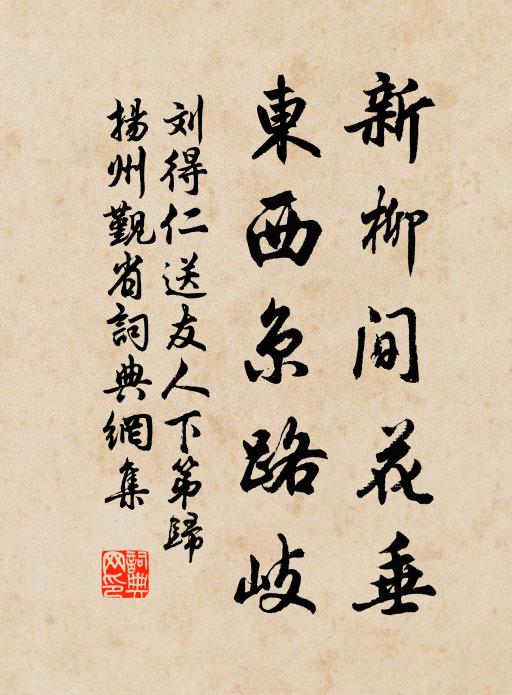 新柳间花垂
東西京路岐
刘得仁送友人下第歸
揚州觐省詞典網集
詞典网印